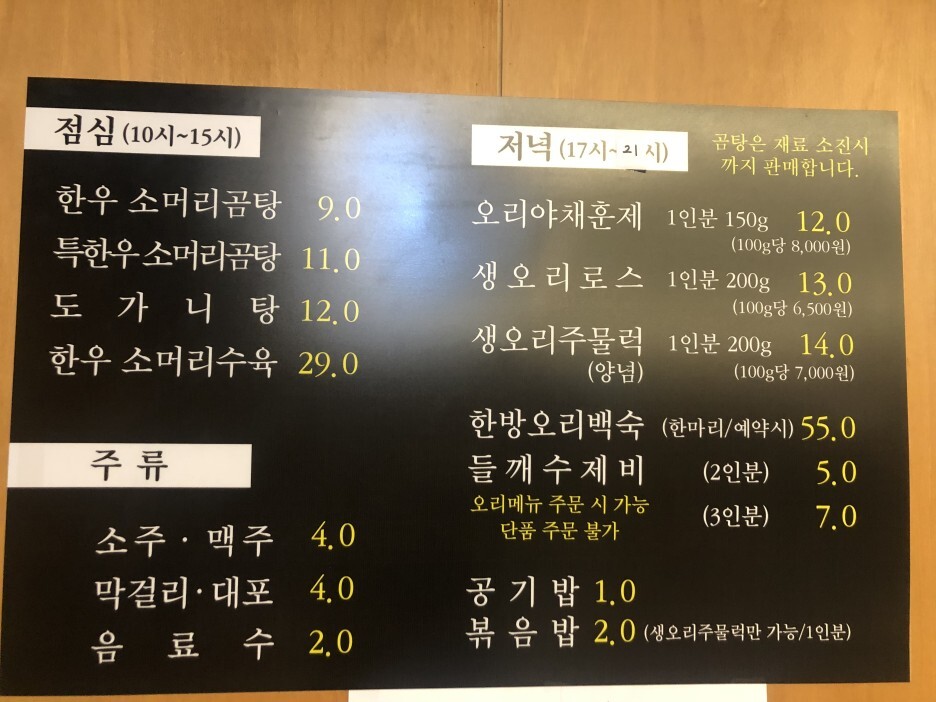 점심 (10시~15시)
한우 소머리곰탕 9.0
특한우 소머리곰탕 11.0
도가니탕 12.0
한우 소머리수육 29.0
주류
소주 · 맥주 4.0
막걸리 · 대포 4.0
음료수 2.0
저녁 (17시~21시)
곰탕은 재료 소진시
까지 판매합니다.
오리야채훈제 1인분 150g 12.0
(100g당 8,000원)
생오리로스 1인분 200g 13.0
(100g당 6,500원)
생오리주물럭 1인분 200g 14.0
(양념) (100g당 7,000원)
한방오리백숙 (한마리/예약시) 55.0
들깨수제비 (2인분) 5.0
오리메뉴 주문 시 가능
단품 주문 불가
(3인분) 7.0
공기밥 1.0
볶음밥 2.0 (생오리주물럭만 가능/1인분)